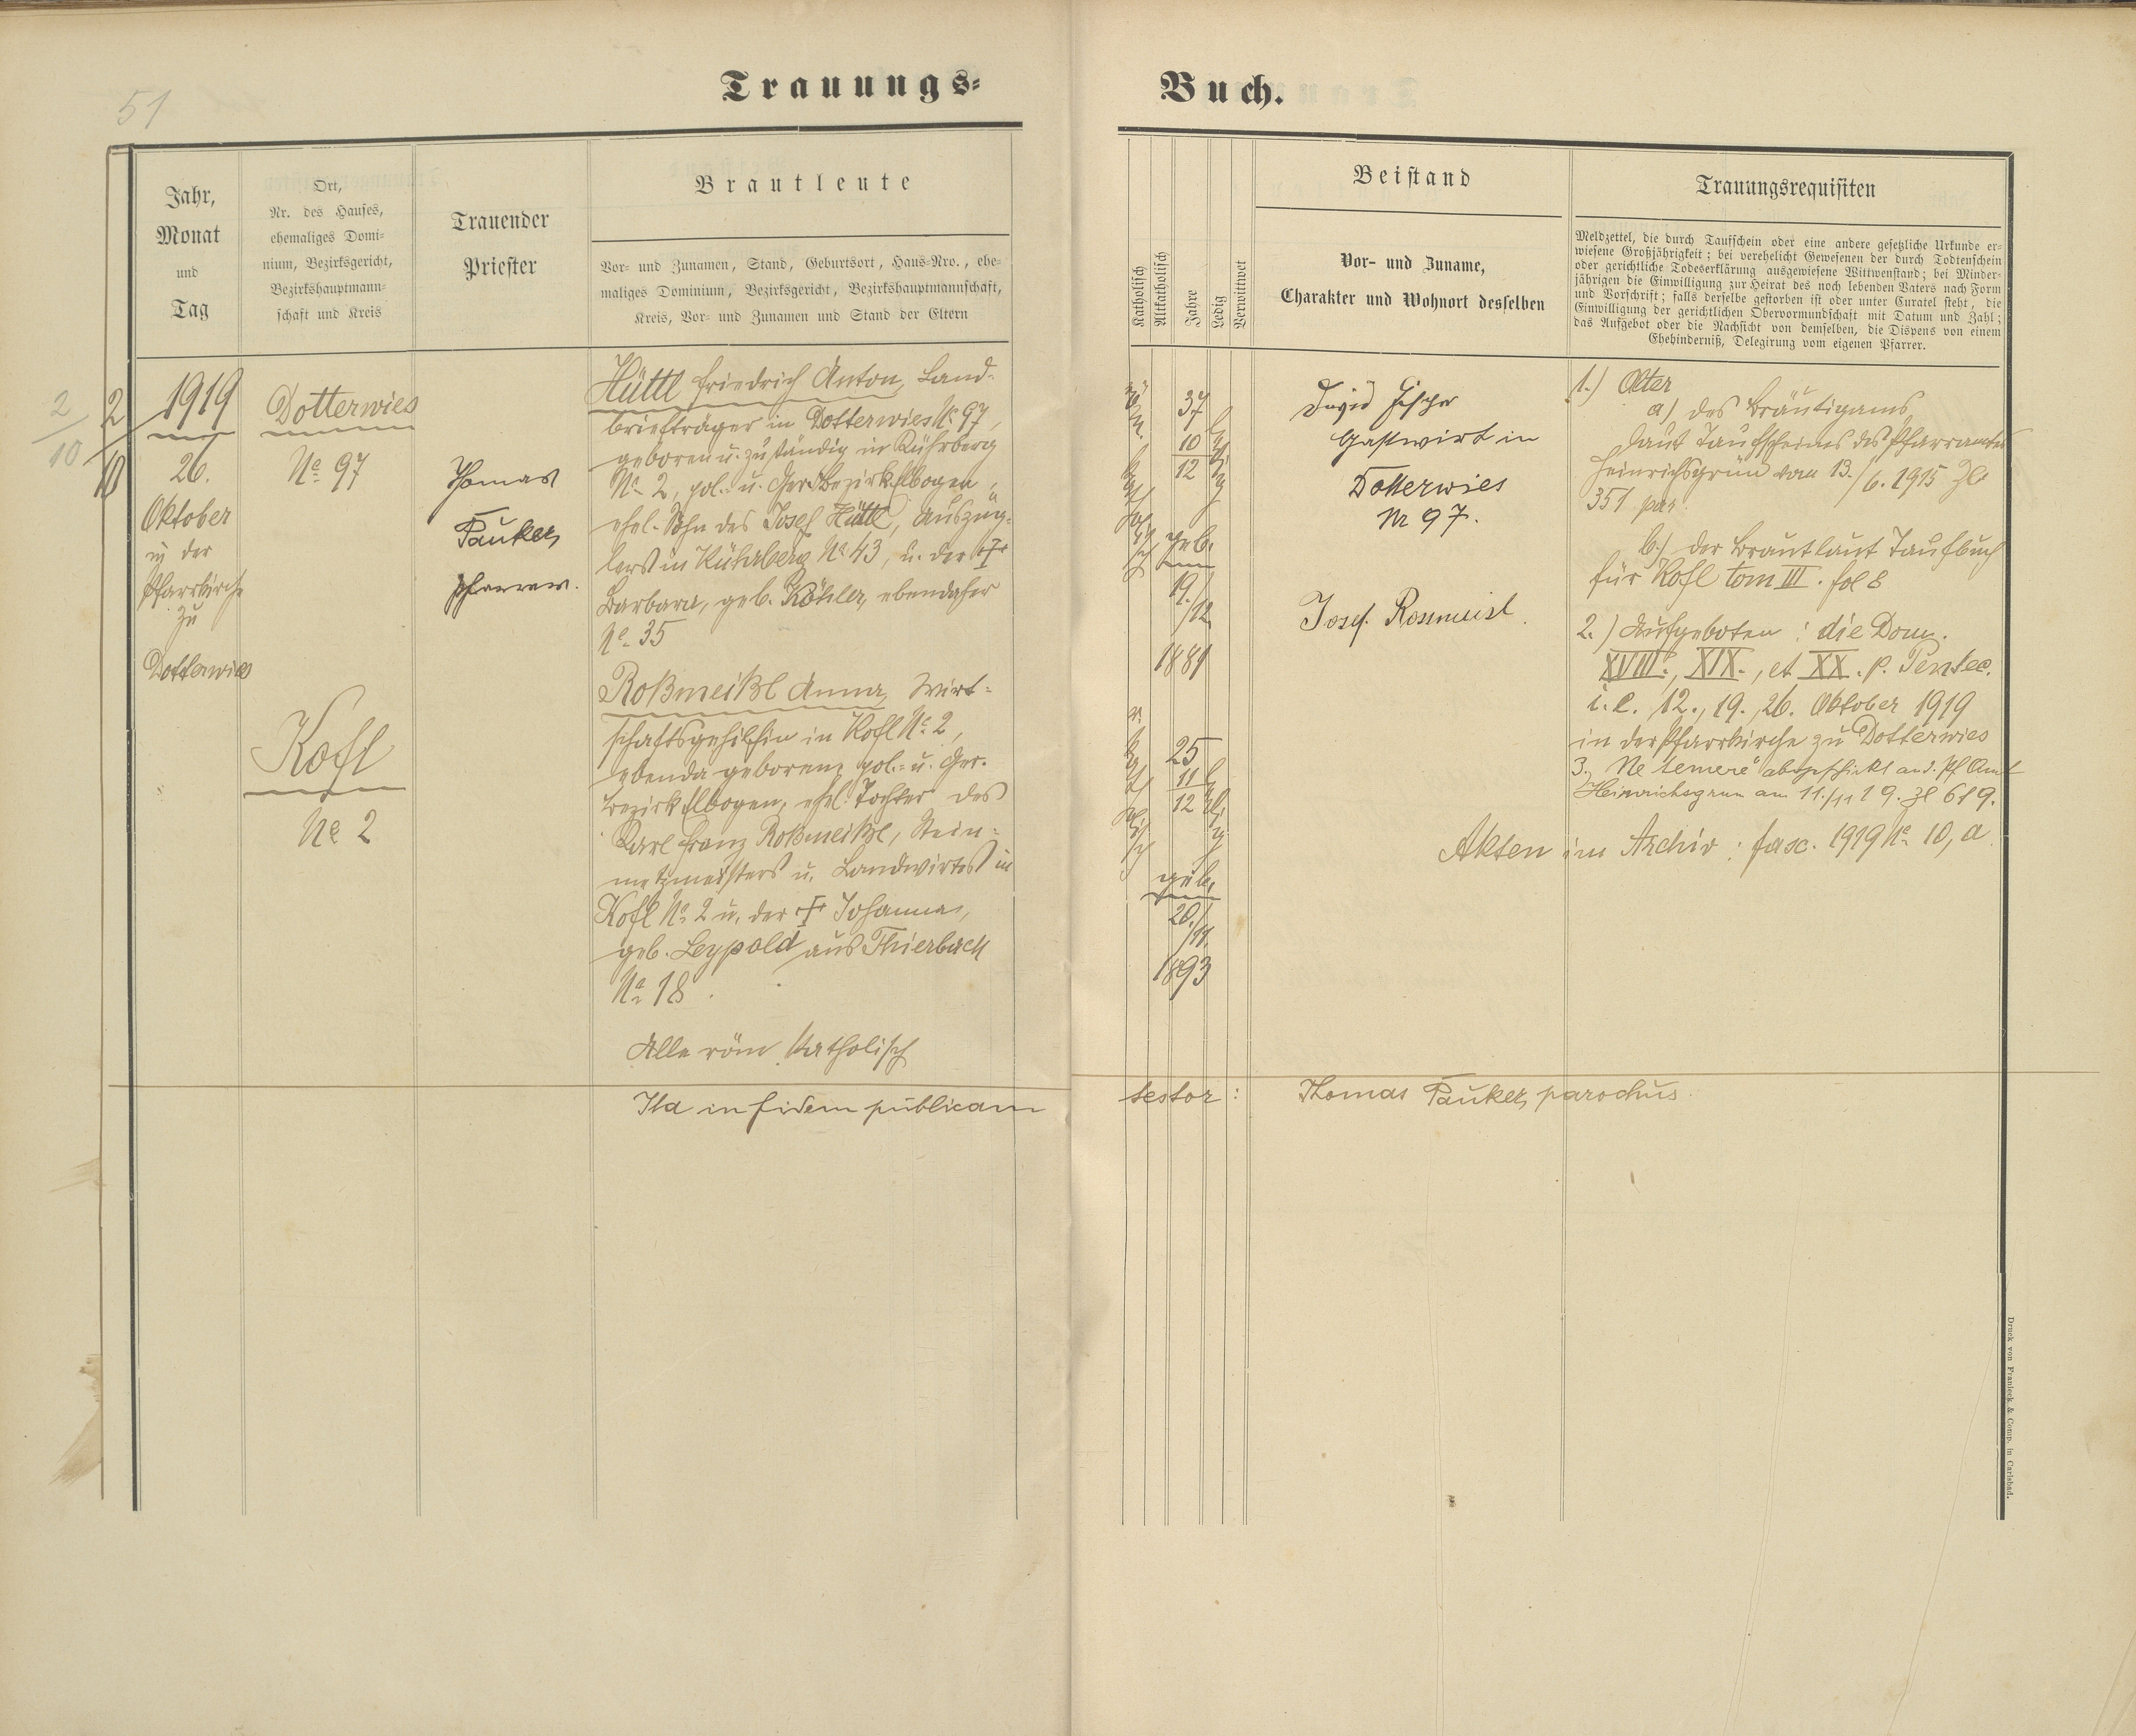 51
Trauungs-
Buch.
Jahr,
Monat
und
Tag
Ort,
Nr. des Hauses,
ehemaliges Domi-
nium, Bezirksgericht,
Bezirkshauptmann-
schaft und Kreis
Trauender
Priester
Brautleute
Vor- und Zunamen, Stand, Geburtsort, Haus-Nro., ehe-
maliges Dominium, Bezirksgericht, Bezirkshauptmannschaft,
Kreis, Vor- und Zunamen und Stand der Eltern
Katholisch
Altkatholisch
Jahre
Ledig
Verwitwet
Beistand
Vor- und Zuname,
Charakter und Wohnort desselben
Trauungsrequisiten
Meldzettel, die durch Taufschein oder eine andere gesetzliche Urkunde er-
wiesene Großjährigkeit; bei verehelicht Gewesenen der durch Todtenschein
oder gerichtliche Todeserklärung ausgewiesene Wittwenstand; bei Minder-
jährigen die Einwilligung zur Heirat des noch lebenden Vaters nach Form
und Vorschrift; falls derselbe gestorben ist oder unter Curatel steht, die
Einwilligung der gerichtlichen Obervormundschaft mit Datum und Zahl;
das Aufgebot oder die Nachsicht von demselben, die Dispens von einem
Ehehinderniß, Delegirung vom eigenen Pfarrer.
2/10
2/10
1919
26.
Oktober
in der
Pfarrkirche
zu
Dotterwies
Dotterwies
No 97
Kofl
No 2
Thomas
Pauker,
Pfarrer.
Hüttl Friedrich Anton, Land-
briefträger in Dotterwies No 97,
geboren u. zuständig in Kührberg
No 2, pol. u. Ger. Bezirk Elbogen,
ehel. Sohn des Josef Hüttl, Auszüg-
lers in Kührberg No 43, u. der †
Barbara, geb. Köhler, ebendaher
No 35
Roßmeißl Anna, Wirt-
schaftsgehilfin in Kofl No 2,
ebenda geboren, pol. u. Ger.
Bezirk Elbogen, ehel. Tochter des
Karl Franz Roßmeißl, Stein-
metzmeisters u. Landwirtes in
Kofl No 2 u. der † Johanna,
geb. Leypold aus Thierbach
No 18.
Alle röm. katholisch
röm. katholisch
37
10
12
ledig
geb.
19./12.
1881
r. katholisch
25
11
12
ledig
geb.
20./11.
1893
David Fischer
Gastwirt in
Dotterwies
Nr 97.
Josef Rosmeisl.
1.) Alter
a) des Bräutigams
laut Taufscheines des Pfarramtes
Heinrichsgrün vom 13./6. 1915 Zl
351 par.
b.) der Braut laut Taufbuch
für Kofl tom III. fol 8
2.) Aufgeboten: die Dom.
XVIII., XIX., et XX. p. Pentec.
i. e. 12., 19., 26. Oktober 1919
in der Pfarrkirche zu Dotterwies
3., Ne temere abgeschickt an d. Pf Amt
Heinrichsgrün am 11./11 19. Zl 619.
Akten im Archiv: fasc. 1919 No 10, a.
Ita in fidem publicam
testor: Thomas Pauker, parochus.
Druck von Franieck & Comp. in Carlsbad.